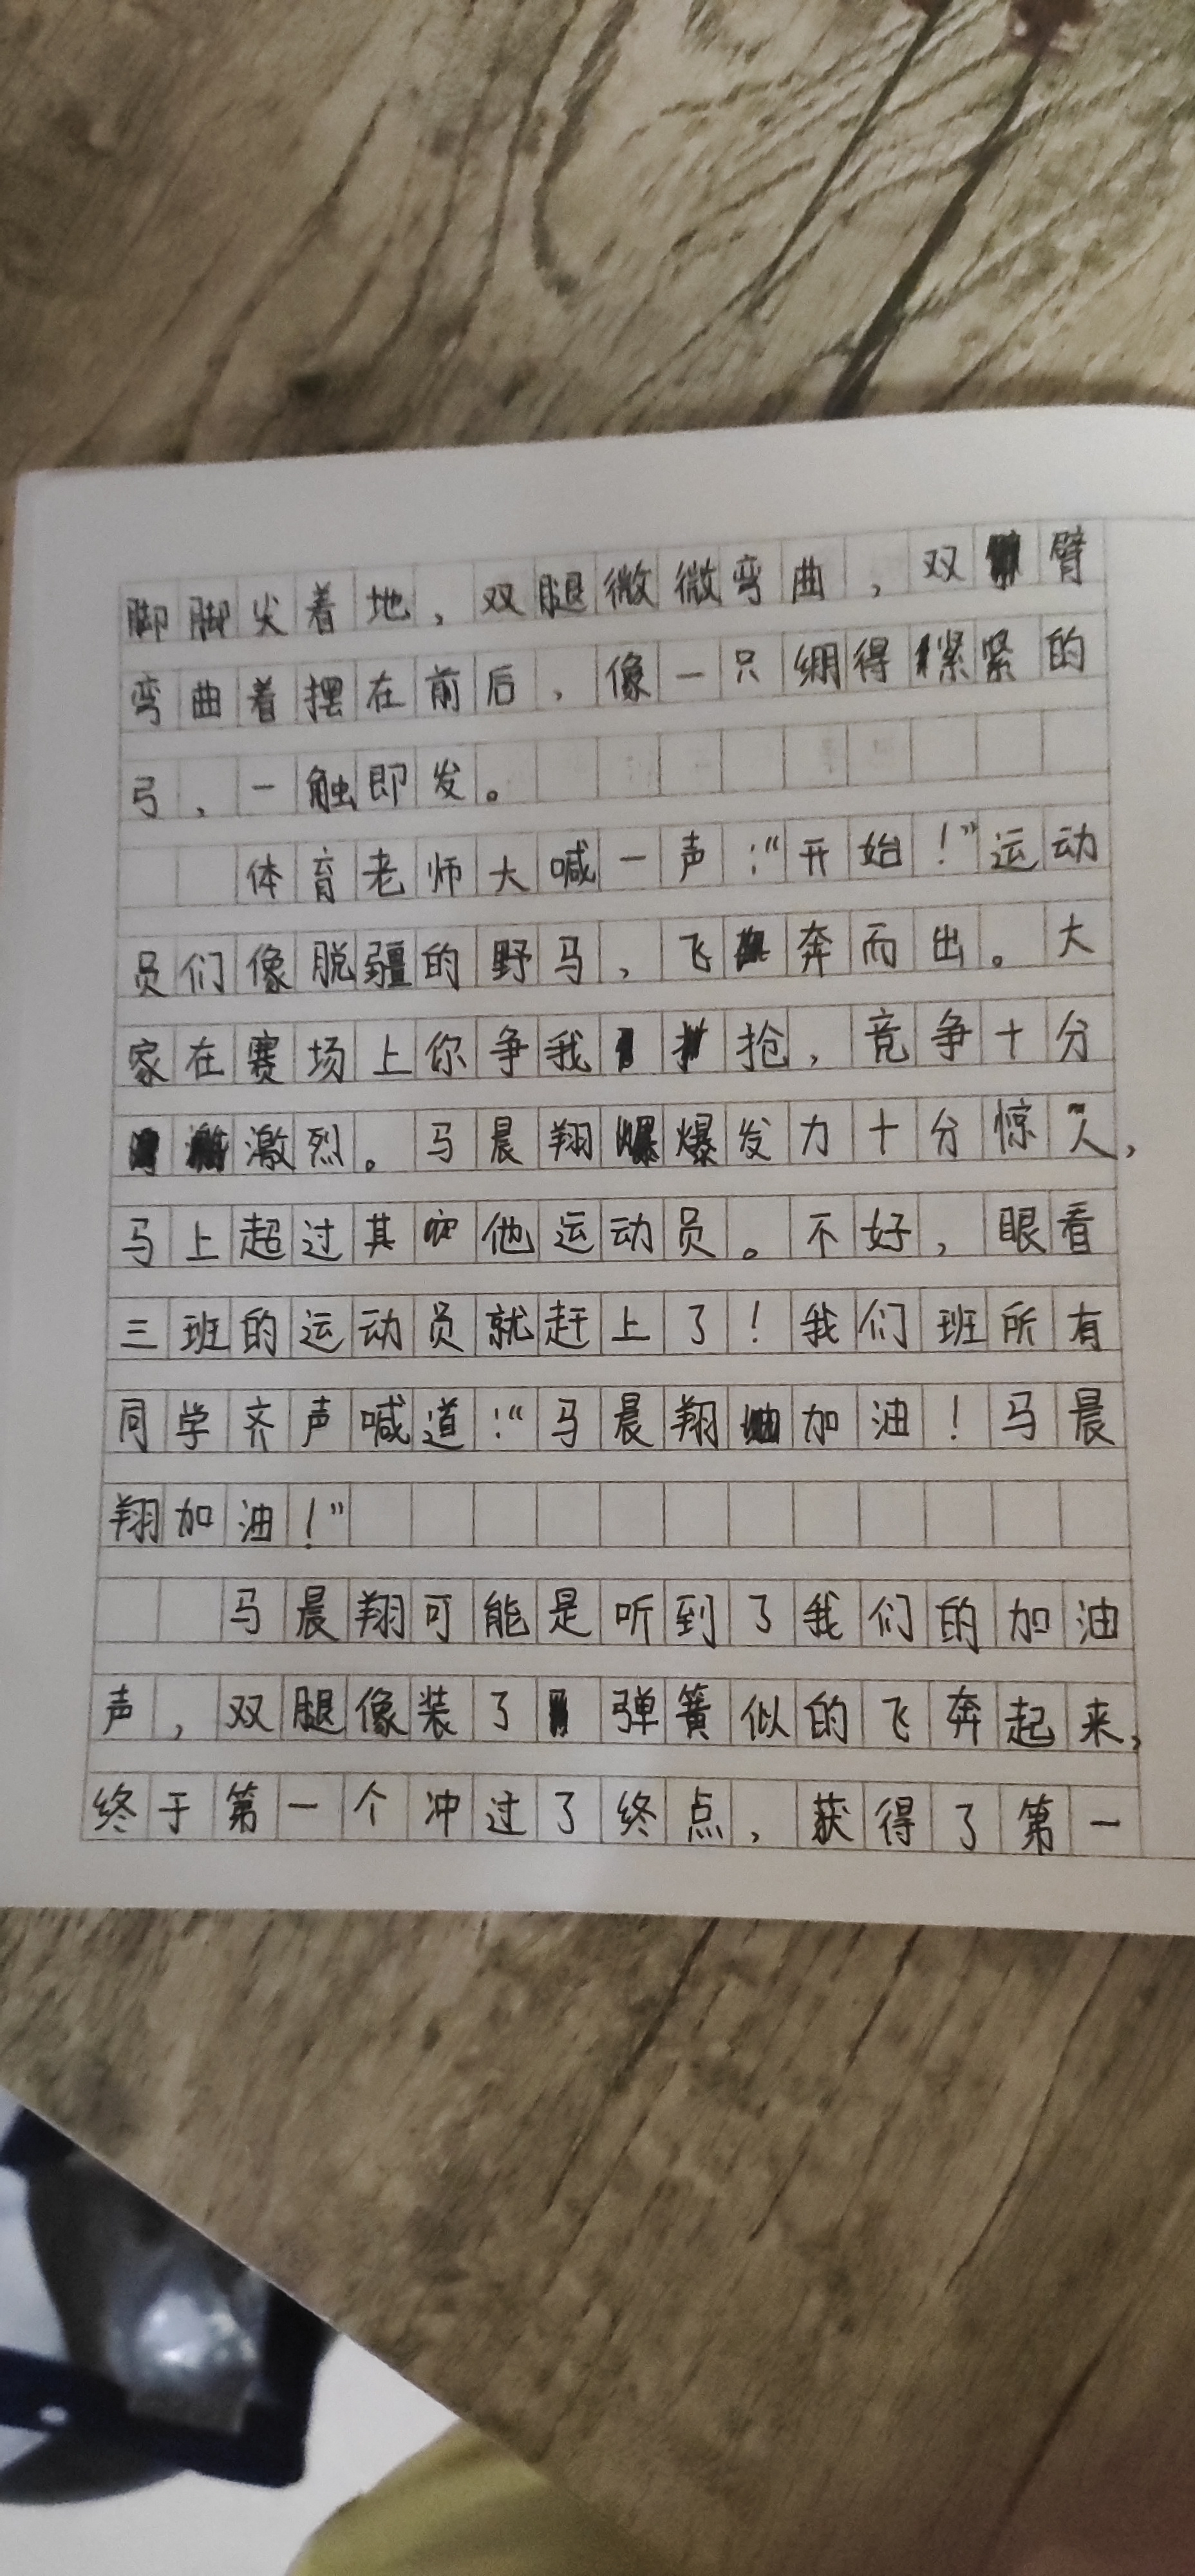 脚脚尖着地，双腿微微弯曲，双臂
弯曲着摆在前后，像一只绷得紧紧的
弓，一触即发。
体育老师大喊一声：“开始！”运动
员们像脱疆的野马，飞奔而出。大
家在赛场上你争我抢，竞争十分
激烈。马晨翔爆发力十分惊人，
马上超过其他运动员。不好，眼看
三班的运动员就赶上了！我们班所有
同学齐声喊道：“马晨翔加油！马晨
翔加油！”
马晨翔可能是听到了我们的加油
声，双腿像装了弹簧似的飞奔起来，
终于第一个冲过了终点，获得了第一